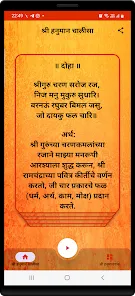 22:49
श्री हनुमान चालीसा
॥ दोहा ॥
श्रीगुरु चरण सरोज रज,
निज मनु मुकुरु सुधारि।
बरनऊं रघुबर बिमल जसु,
जो दायकु फल चारि॥
अर्थ:
श्री गुरुंच्या चरणकमलांच्या
रजाने माझ्या मनरूपी
आरशाला शुद्ध करून, श्री
रामचंद्राच्या पवित्र कीर्तीचे वर्णन
करतो, जी चार प्रकारचे फळ
(धर्म, अर्थ, काम, मोक्ष) प्रदान
करतो.